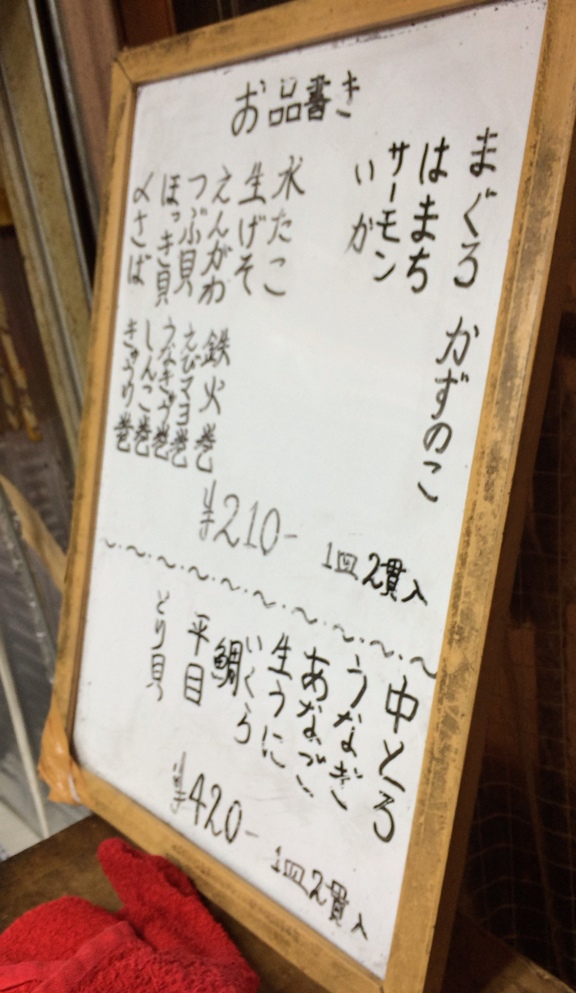 お品書き
まぐろ
はまち
サーモン
いか
水たこ
生げそ
えんがわ
つぶ貝
ほっき貝
〆さば
かずのこ
鉄火巻
えびマヨ巻
うなきゅう巻
しんこ巻
きゅうり巻
半210-
1皿2貫入
中とろ
うなぎ
あなご
生うに
いくら
鯛
平目
とり貝
半420-
1皿2貫入